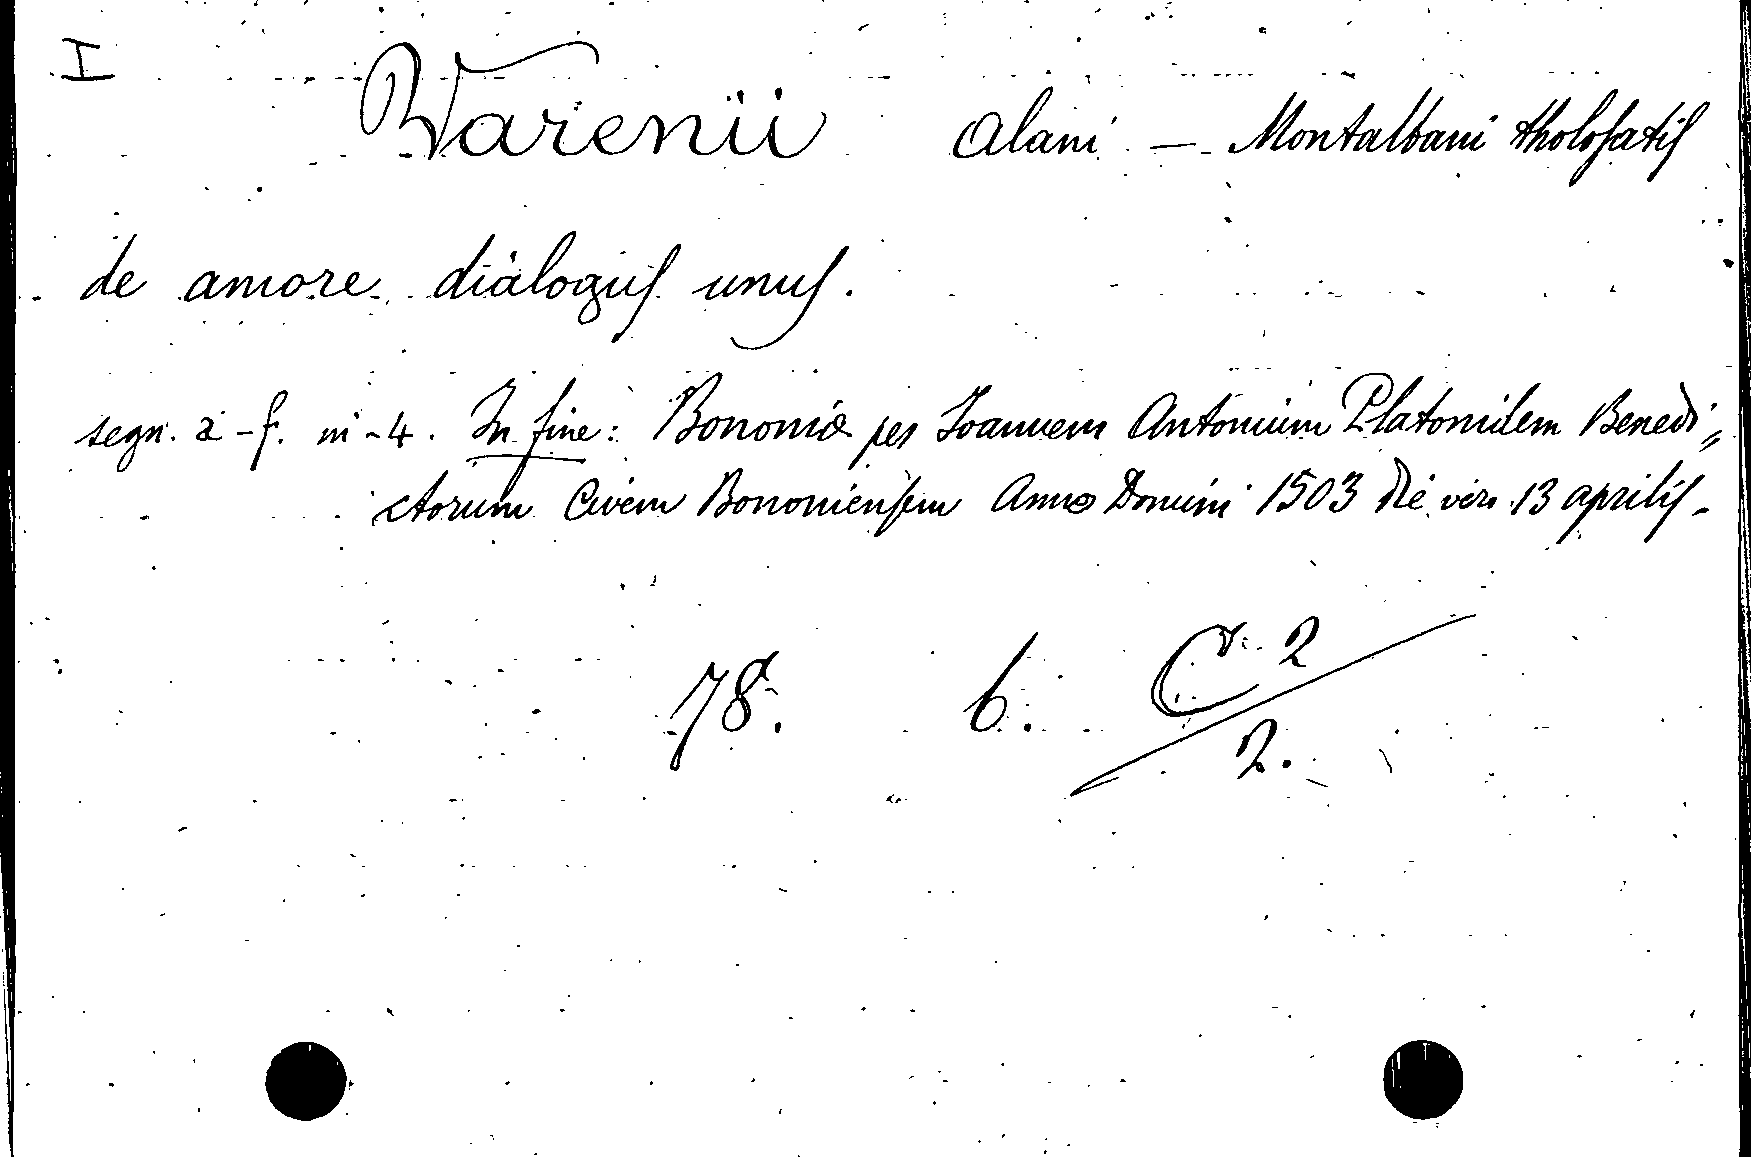 I
Varenii Alani — Montalbani tholosatis
de amore dialogus unus.
segn. a - f. in - 4. In fine: Bononiæ per Ioannem Antonium Platonidem Benedi„
ctorum Civem Bononiensem Anno Domini 1503 die vero 13 aprilis.
78. 6. C 2
2.